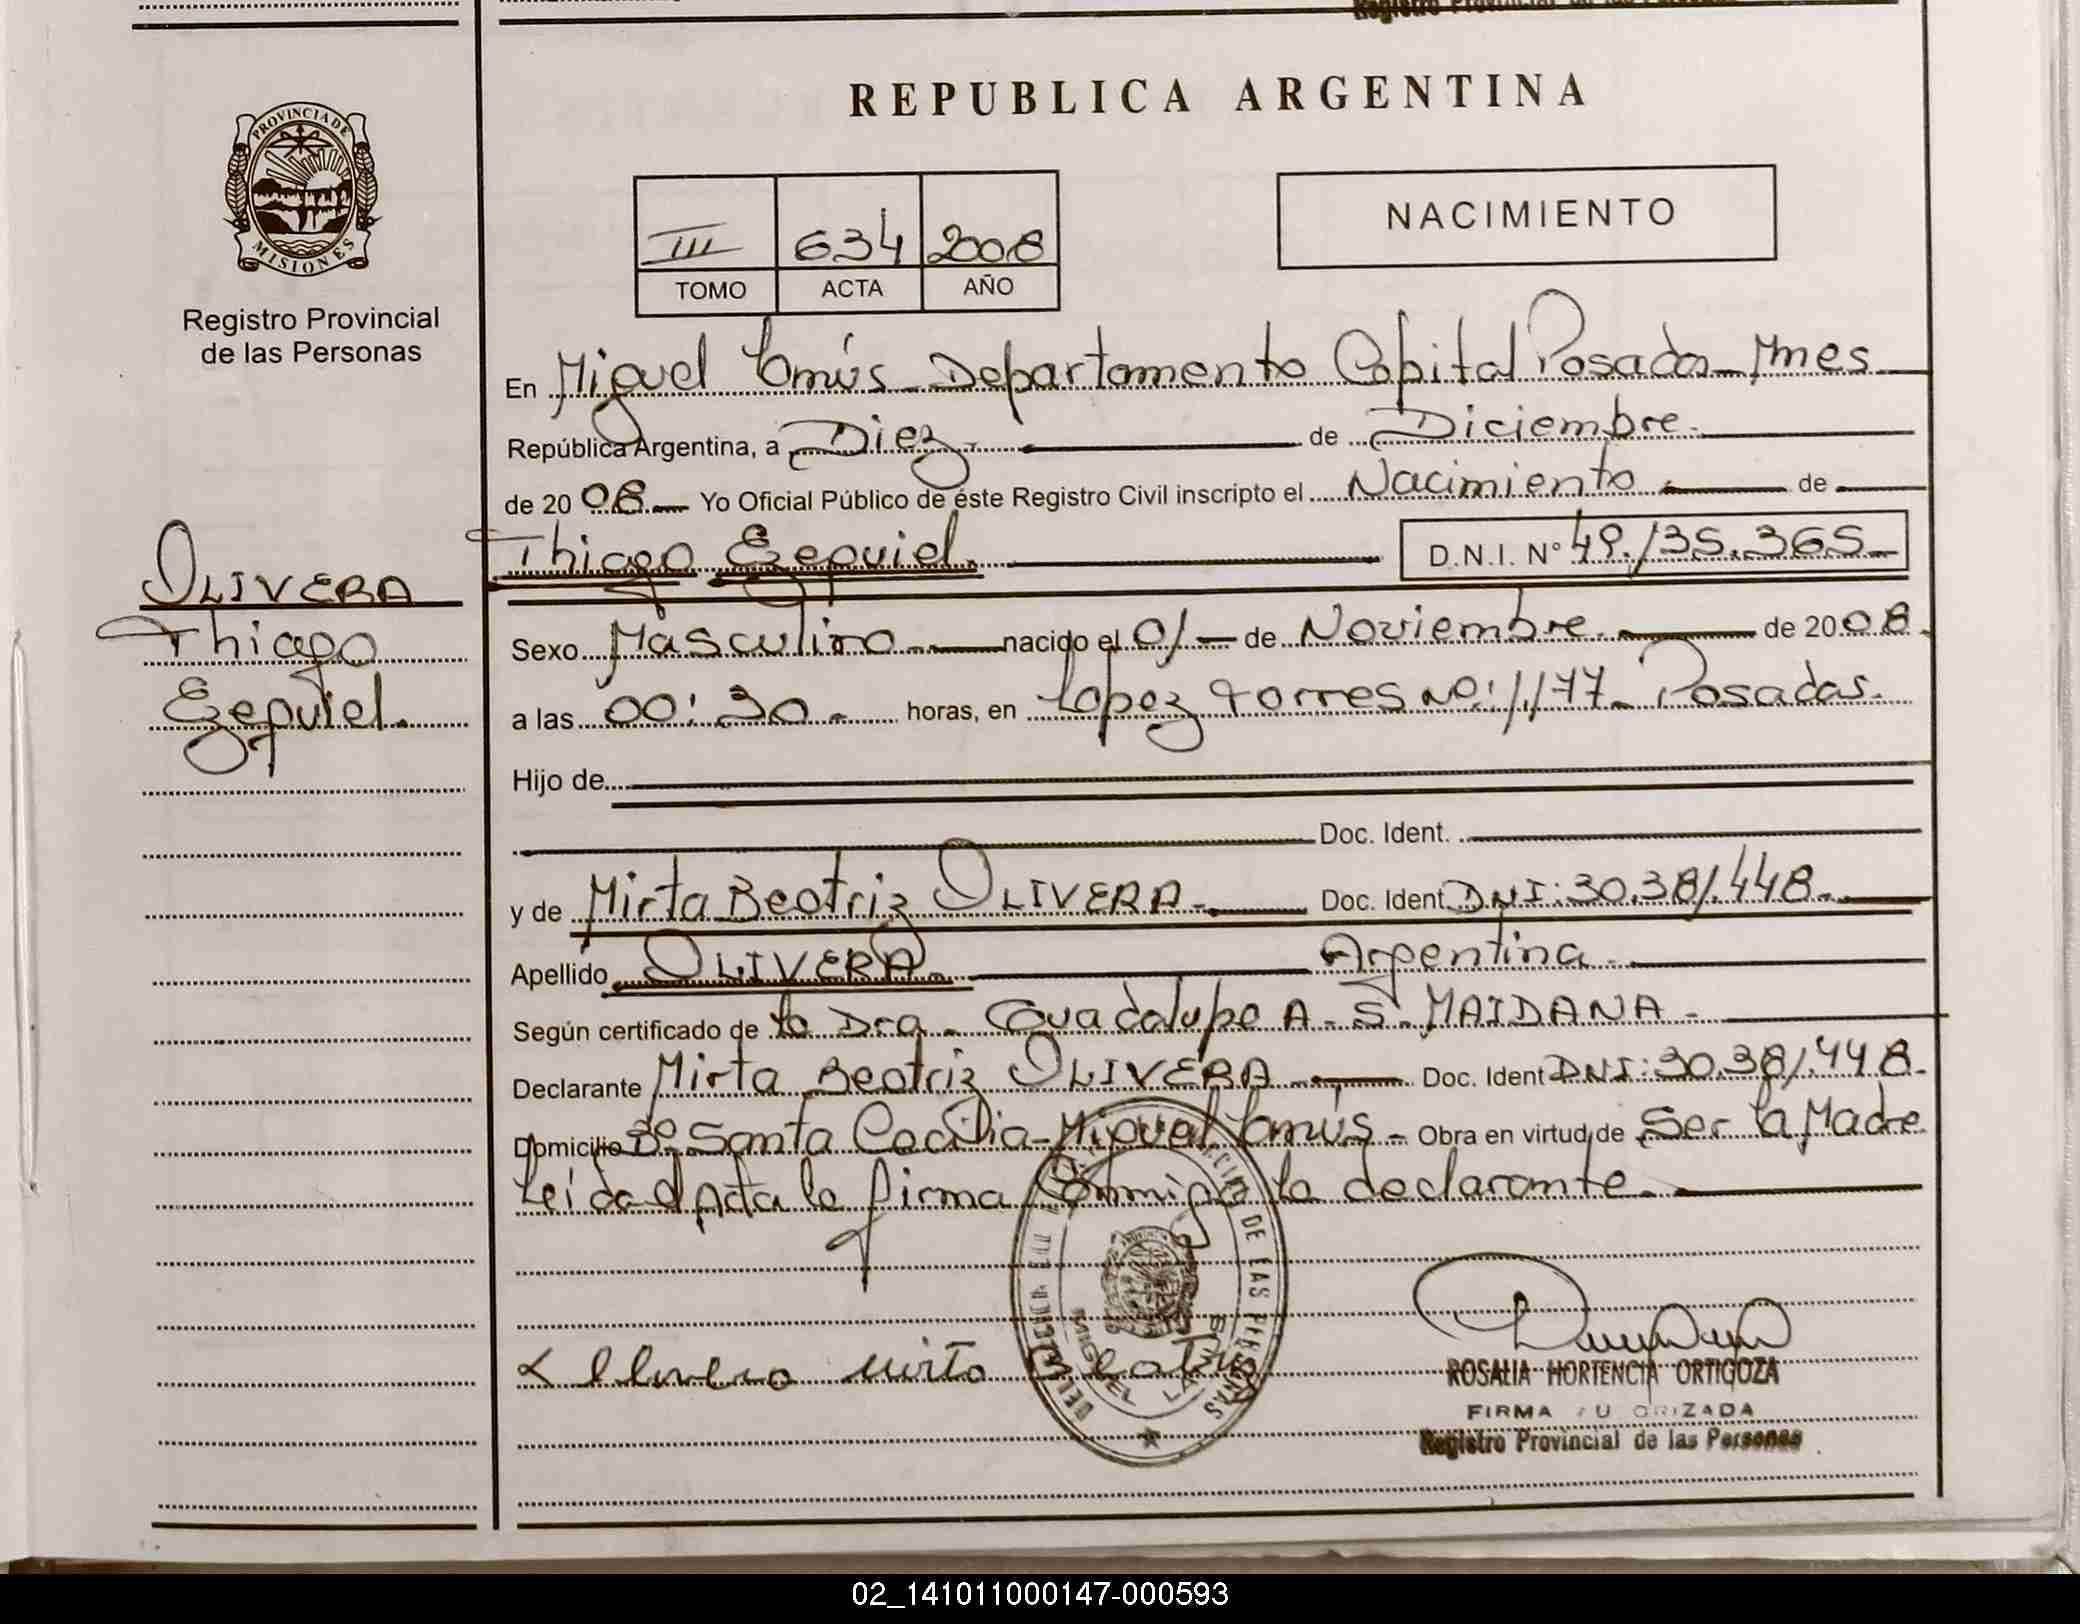 Registro Provincial de las Personas
REPUBLICA ARGENTINA
PROVINCIA DE
MISIONES
Registro Provincial
de las Personas
III 634 2008
TOMO ACTA AÑO
NACIMIENTO
En Miguel Lanús - Departamento Capital Posadas - Mnes
República Argentina, a Diez. de Diciembre.
de 2008 Yo Oficial Público de éste Registro Civil inscripto el Nacimiento de
Thiago Ezequiel. D.N.I. N° 49.135.365
OLIVERA
Thiago
Ezequiel.
Sexo Masculino nacido el 01 de Noviembre. de 2008.
a las 00:30. horas, en Lopez Torres Nº: 1177 - Posadas.
Hijo de
Doc. Ident.
y de Mirta Beatriz OLIVERA. Doc. Ident. DNI: 30.381.448.
Apellido OLIVERA. Argentina.
Según certificado de la Dra. Guadalupe A. S. MAIDANA -
Declarante Mirta Beatriz OLIVERA Doc. Ident DNI: 30.381.448.
Domicilio Bº Santa Cecilia - Miguel Lanús - Obra en virtud de Ser la Madre
Leída el Acta la firma Conmigo la declarante.
Mirta
DE LAS PERSONAS
MIGUEL LANUS
ROSALIA HORTENCIA ORTIGOZA
FIRMA AUTORIZADA
Registro Provincial de las Personas
02_141011000147-000593